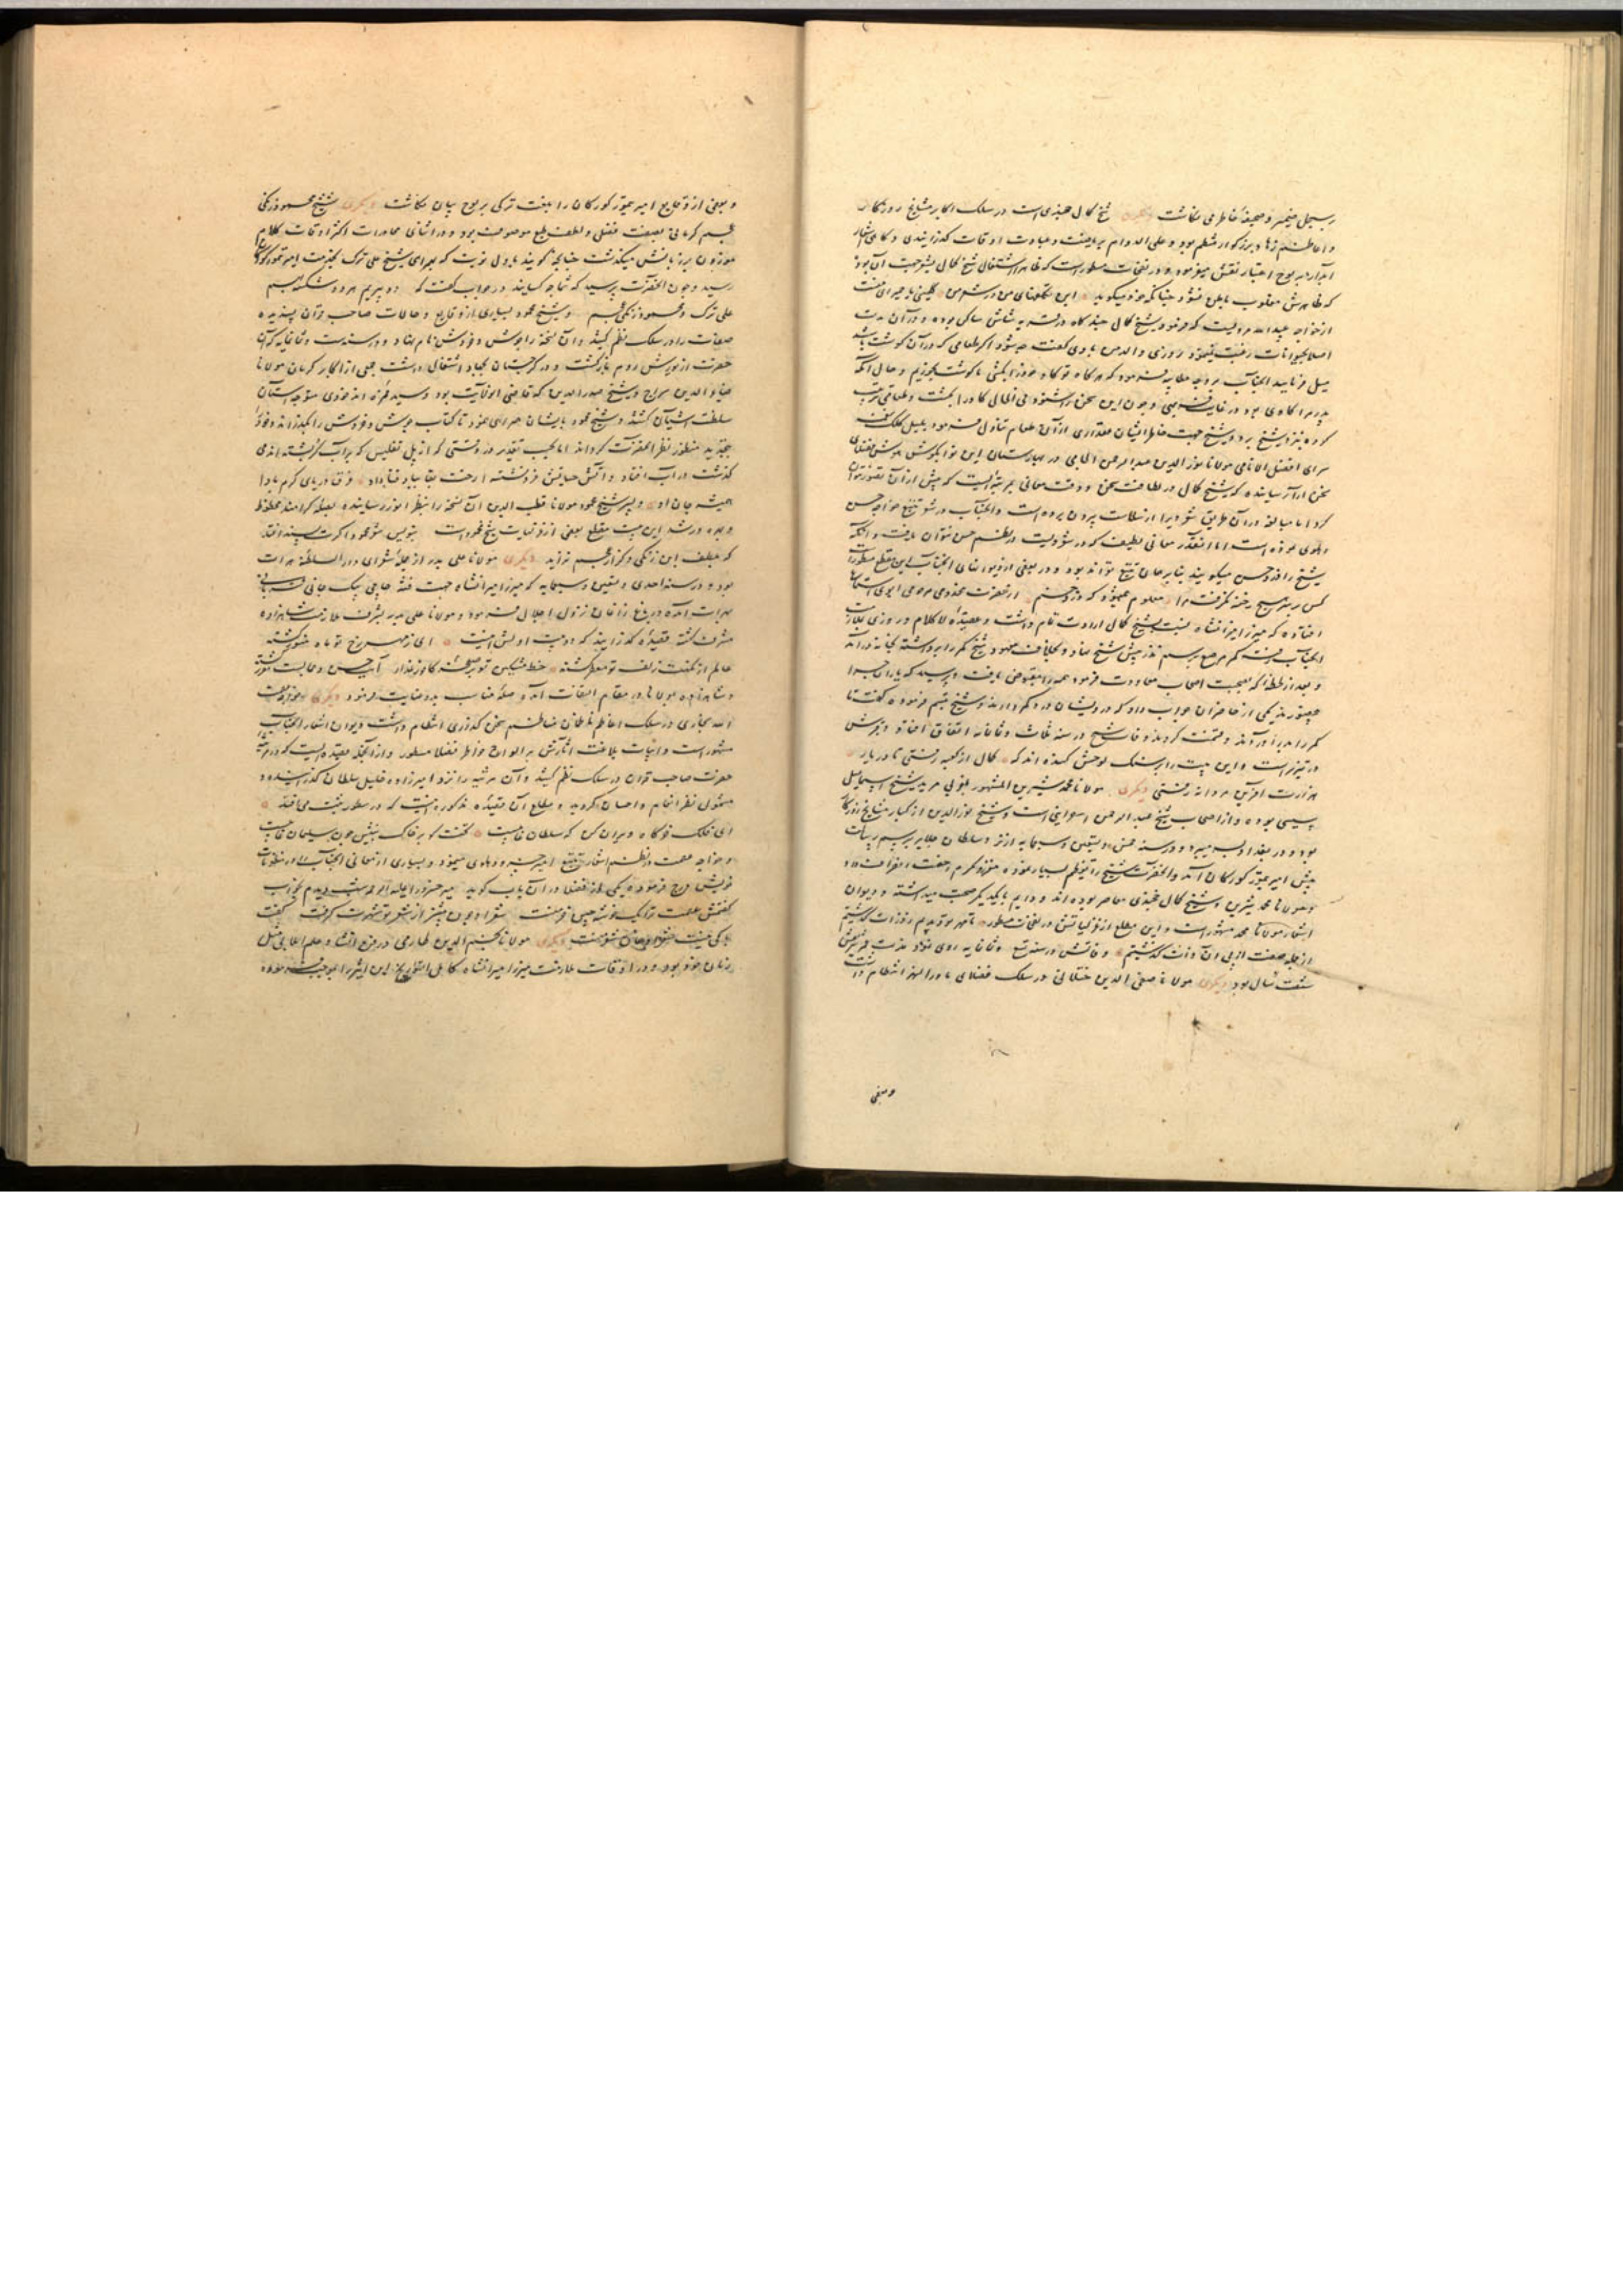 بسجل ضمیر و صحیفهٔ خاطر می نگاشت دیگری شیخ کمال خجندی است در سلک اکابر مشایخ روزگار
و اعاظم زهاد بزرگوار منتظم بود و علی الدوام بریاضت و عبادت اوقات گذرانیدی و گاهی اشعار
آبدار بر لوح اعتبار نقش میفرمود و در نفحات مسطور است که ظاهرا اشتغال شیخ کمال بشعر جهت آن بود
که ظاهرش مغلوب باطن نشود چنانکه خود میگوید این تکلفهای من در شعر من کلمینی یا حمیرای منست
از خواجه عبیدالله مرویست که فرمود شیخ کمال چند گاه در شاش ساکن بوده و در آن مدت
اصلا بحیوانات رغبت نمینمود روزی والد من با وی گفت چه شود اگر طعامی که در آن گوشت باشد
میل فرمایید آنجناب بر وجه مطایبه فرمود که هرگاه تو گاو خود را بکشی ما گوشت بخوریم و حال آنکه
پدر مرا گاوی بود در غایت فربهی و چون این سخن را شنود فی الحال گاو را بکشت و طعامی مرتب
کرده نزد شیخ برد و شیخ جهت خاطر ایشان مقداری از آن طعام تناول فرمود
سرای افضل الانامی مولانا نورالدین عبدالرحمن الجامی در بهارستان این نوا بگوش هوش
سخن آرا رسانیده که شیخ کمال در لطافت سخن و دقت معانی بمرتبه ایست که بیش از آن تصور نتوان
کرد اما مبالغه در آن طریق شعر ویرا از سلاست بیرون برده است و آنجناب در شعر تتبع خواجه حسن
دهلوی نموده است اما آنقدر معانی لطیف که در شعر ویست در نظم حسن نتوان یافت و آنکه
شیخ را دزد حسن میگویند بنابر همان تتبع تواند بود و در بعضی از دیوانهای آنجناب این مقطع مسطور است
کس بر سر هیچ رخنه نگرفت مرا معلوم همیشود که دزد حسنم از حضرت مخدومی مرحومی ابوی استماع
افتاده که میرزا میرانشاه نسبت بشیخ کمال ارادت تمام داشت
آنجناب رفت کمر مرصع برسم نذر پیش شیخ نهاد و بخلاف معهود شیخ کمر را برداشته بخانه درآمد
و بعد از لحظه که بصحبت اصحاب معاودت فرمود همه را مقبوض یافت و پرسید که یاران چرا
یکی از حاضران جواب داد که درویشان در و شیخ تبسم فرموده گفت تا
کمر را در آوردند و قسمت کردند وفات شیخ در سنه ثلاث و ثمانمایه اتفاق افتاد و قبرش
در تبریز است و این بیت را بر سنگ لوحش کنده اند که کمال از کعبه رفتی تا در یار
هزارت آفرین مردانه رفتی دیگری مولانا محمد شیرین المشهور بمغربی مرید شیخ اسمعیل
سیسی بوده و از اصحاب شیخ عبدالرحمن اسفراینی است و شیخ نورالدین از کبار مشایخ روزگار
بود و در بغداد بسر میبرد و در سنه خمس و تسعین و سبعمایه از نزد سلطان جلایر برسم رسالت
پیش امیر تیمور گورکان آمد و آنحضرت شیخ را تعظیم بسیار نموده معزز و مکرم رخصت انصراف داد
و مولانا محمد شیرین و شیخ کمال خجندی معاصر بوده اند و دایم با یکدیگر صحبت میداشته و دیوان
اشعار مولانا محمد مشهور است و این مطلع از غزلیاتش در نفحات مسطور تا مهر تو دیدیم ز ذرات گذشتیم
از جمله صفات از پی آن ذات گذشتیم وفاتش در سنه تسع و ثمانمایه روی نمود مدت عمر شریفش
شصت سال بود دیگری مولانا صفی الدین ختلانی در سلک فضلای ماوراءالنهر انتظام داشت
و بعضی
و بعضی از وقایع امیر تیمور گورکان را بلغت ترکی بر لوح بیان نگاشت دیگری شیخ محمود زنگی
عجم کرمانی بصفت فضل و لطف طبع موصوف بود و در اثنای محاورات اکثر اوقات کلام
موزون بر زبانش میگذشت چنانچه گویند باول نوبت که بهمراهی شیخ علی ترک بخدمت امیر تیمور گورکان
رسید و چون آنحضرت پرسید که شما چه کسانید در جواب گفت که دو پیریم هر دو شکسته بهم
علی ترک و محمود زنگی عجم و شیخ محمود بسیاری از وقایع و حالات صاحب قران پسندیده
صفات را در سلک نظم کشید و آن نسخه را جوش و خروش نام نهاد و در سنه ست و ثمانمایه که آن
حضرت از یورش روم بازگشت و در گرجستان بجهاد اشتغال داشت جمعی از اکابر کرمان مولانا
ضیاء الدین سراج و شیخ صدرالدین که قاضی آنولایت بود و سید حمزه متوجه آستان
سلطنت آشیان گشتند و شیخ محمود با ایشان همراهی نمود تا کتاب جوش و خروش را بگذراند و خود
بنظر آنحضرت گرداند اما بحسب تقدیر در وقتی که از پل تفلیس که بر آب کر بسته اند می
گذشت در آب افتاد و آتش حیاتش فرو نشسته رخت بقا بباد فنا داد غرق دریای کرم بادا
همیشه جان او و پسر شیخ محمود مولانا قطب الدین آن نسخه را بنظر انور رسانیده بصله گرامند محظوظ
و بهره ور شد این بیت مقطع بعضی از غزلیات شیخ محمود است بنویس شعر محمود اگرت پسند افتد
که بلطف ابن زنگی دگر از عجم نزاید دیگری مولانا علی بدر از جمله شعرای دارالسلطنه هرات
بود و در سنه احدی و تسعین و سبعمایه که میرزا میرانشاه جهت فتنه حاجی بیک جانی قربانی
بهرات آمده در باغ زاغان نزول اجلال فرمود و مولانا علی بدر بشرف ملازمت شاهزاده
مشرف گشته قصیده گذرانید که دو بیت اولش اینست ای از مهر رخ تو ماه منور گشته
عالم از نکهت زلف تو معطر گشته خط مشکین تو بر صفحه گلزار عذار آیت حسن و جمالیست
و شاهزاده با مولانا در مقام التفات آمد و صلهٔ مناسب بدو عنایت فرمود دیگری خواجه عصمت
الله بخاری در سلک اعاظم ناظمان مناظم سخن گذاری انتظام داشت دیوان اشعار آنجناب
مشهور است و ابیات بلاغت آثارش بر الواح خواطر فضلا مسطور و از آنجمله قصیده ایست که در مرثیه
حضرت صاحب قران در سلک نظم کشید و آن مرثیه را نزد امیرزاده خلیل سلطان گذرانیده و
مشمول نظر انعام و احسان گردید و مطلع آن قصیده مذکوره اینست که در سطور ثبت می افتد
ای فلک خرگاه ویران کن که سلطان غایبست تخت گو بر خاک بنشین چون سلیمان غایبست
و خواجه عصمت در نظم اشعار تتبع امیر خسرو دهلوی مینمود و بسیاری از معانی آنجناب را در منظومات
خویش درج فرموده یکی از فضلا در آن باب گوید میر خسرو را علیه الرحمه شب دیدم بخواب
گفتمش عصمت ترا یک خوشه چین خرمنست شعر او چون بیشتر از شعر تو شهرت گرفت گفت
باکی نیست شعر او همان شعر منست دیگری مولانا نجم الدین طارمی در فن انشا و علم
زمان خود بود و در اوقات ملازمت میرزا میرانشاه کامل التواریخ ابن اثیر را بموجب فرموده